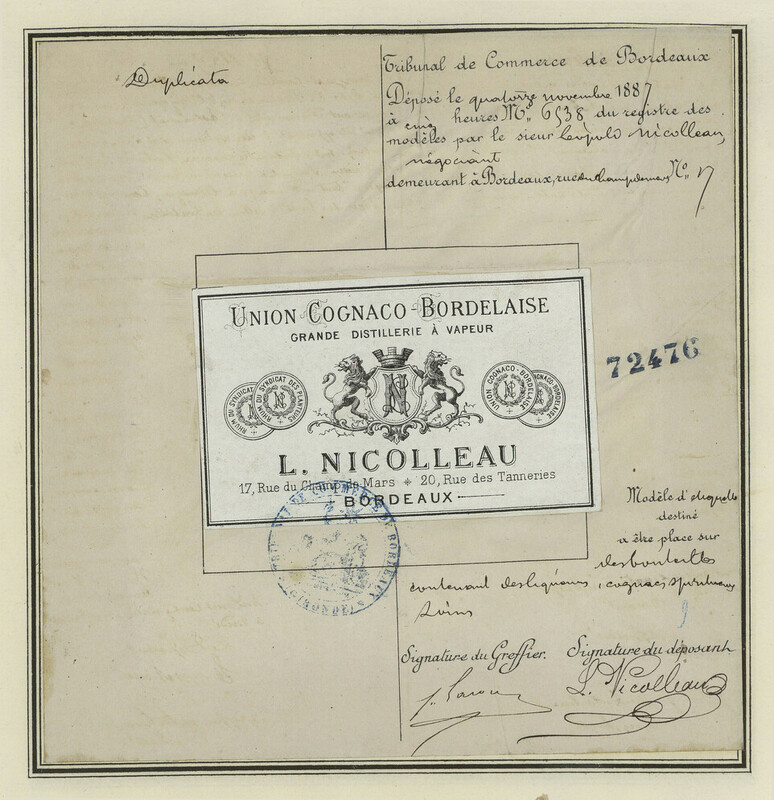 Duplicata
Tribunal de Commerce de Bordeaux
Déposé le quatorze novembre 1887
à cinq heures No. 6538 du registre des
modèles par le sieur Léopold Nicolleau,
négociant
demeurant à Bordeaux, rue du Champ de mars No. 17
UNION COGNACO-BORDELAISE
GRANDE DISTILLERIE À VAPEUR
RHUM DU SYNDICAT
RHUM DU SYNDICAT DES PLANTEURS
N
UNION COGNACO-BORDELAISE
COGNACO-BORDELAISE
L. NICOLLEAU
17, Rue du Champ de Mars 20, Rue des Tanneries
BORDEAUX
72476
TRIBUNAL DE COMMERCE DE BORDEAUX
(GIRONDE)
Modèle d'étiquette
destiné
a être place sur
des bouteilles
contenant des liqueurs, cognacs spiritueux
Signature du Greffier.
Signature du déposant.
L. Nicolleau